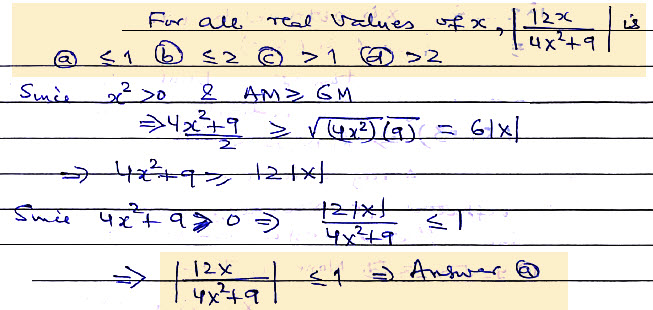 For all real values of x, |12x/(4x²+9)| is
ⓐ ≤1 ⓑ ≤2 ⓒ >1 ⓓ >2
Since x²>0 & AM ≥ GM
⇒ (4x²+9)/2 ≥ √(4x²)(9) = 6|x|
⇒ 4x²+9 ≥ 12|x|
Since 4x²+9 > 0 ⇒ 12|x|/(4x²+9) ≤ 1
⇒ |12x/(4x²+9)| ≤ 1 ⇒ Answer ⓐ